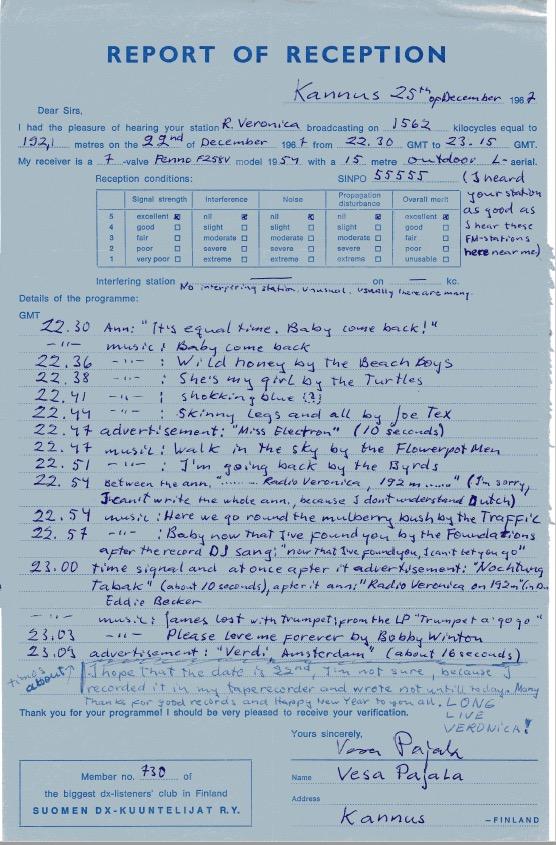 REPORT OF RECEPTION
Kannus 25th of December 1967
Dear Sirs,
I had the pleasure of hearing your station R. Veronica broadcasting on 1562 kilocycles equal to
192,1 metres on the 22nd of December 1967 from 22.30 GMT to 23.15 GMT.
My receiver is a 7 -valve Fenno F258V model 1954 with a 15 metre outdoor L- aerial.
Reception conditions: SINPO 55555 (I heard
your station
as good as
I hear these
FM-stations
here near me)
Signal strength Interference Noise Propagation disturbance Overall merit
5 excellent nil nil nil excellent
4 good slight slight slight good
3 fair moderate moderate moderate fair
2 poor severe severe severe poor
1 very poor extreme extreme extreme unusable
Interfering station — on — kc.
No interfering station, unusual, usually there are many.
Details of the programme:
GMT
22.30 Ann: "It's equal time. Baby come back!"
-"- music: Baby come back
22.36 -"- : Wild honey by the Beach Boys
22.38 -"- : She's my girl by the Turtles
22.41 -"- : shokking blue (?)
22.44 -"- : Skinny legs and all by Joe Tex
22.47 advertisement: "Miss Electron" (10 seconds)
22.47 music: Walk in the sky by the Flowerpot Men
22.51 -"- : I'm going back by the Byrds
22.54 between the ann. "........ Radio Veronica, 192 m ......" (I'm sorry,
I canit write the whole ann, because I don't understand Dutch)
22.54 music: Here we go round the mulberry bush by the Traffic
22.57 -"- : Baby now that I've found you by the Foundations
after the record DJ sang: "now that I've found you, I can't let you go"
23.00 time signal and at once after it advertisement: "Nochtung
Tabak" (about 10 seconds), after it ann: "Radio Veronica on 192m"
Eddie Becker
-"- music: James Lost with Trumpet; from the LP "Trumpet a' go go"
23.03 -"- Please love me forever by Bobby Winton
23.05 advertisement: "Verdi, Amsterdam" (about 16 seconds)
times
about
I hope that the date is 22nd, I'm not sure, because I
recorded it in my taperecorder and wrote not untill today. Many
Thanks for good records and Happy New Year to you all. LONG
LIVE
VERONICA!
Thank you for your programme! I should be very pleased to receive your verification.
Yours sincerely,
Vesa Pajala
Member no. 730 of
the biggest dx-listeners' club in Finland
SUOMEN DX-KUUNTELIJAT R.Y.
Name Vesa Pajala
Address
Kannus
—FINLAND